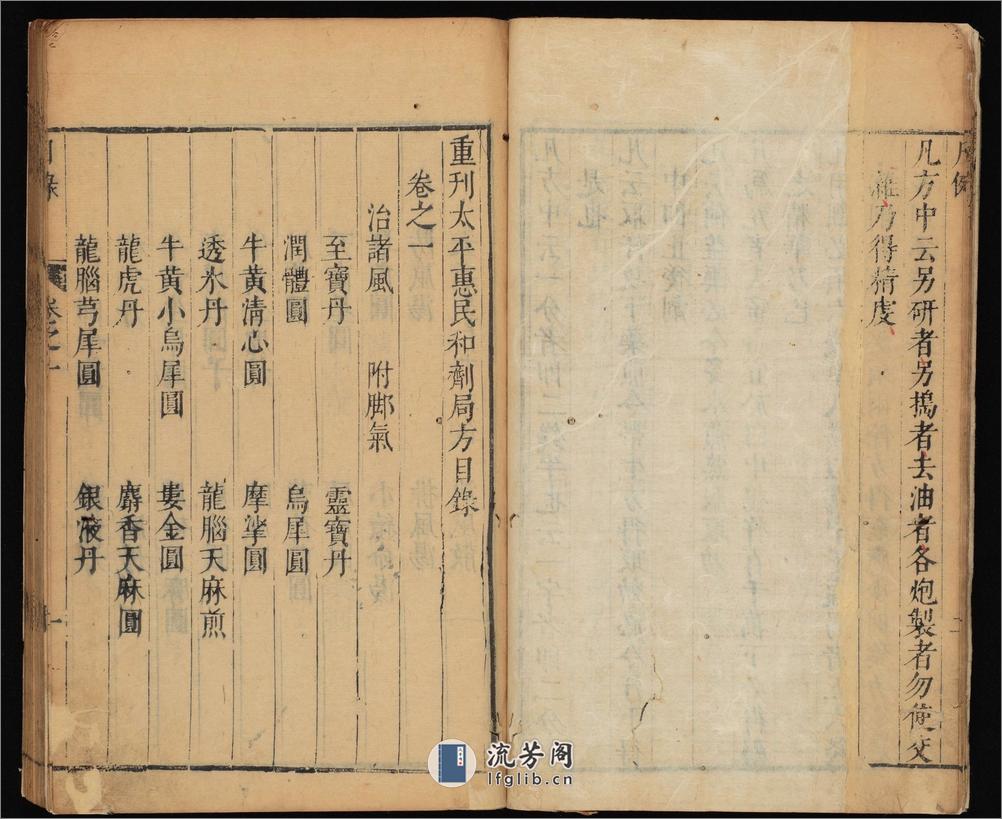 凡方中云另研者另搗者去油者各炮製者勿使交
雜乃得精度
重刊太平惠民和劑局方目錄
卷之一
治諸風 附脚氣
至寶丹 靈寶丹
潤體圓 烏犀圓
牛黄清心圓 摩挲圓
透氷丹 龍腦天麻煎
牛黄小烏犀圓 婁金圓
龍虎丹 麝香天麻圓
龍腦芎犀圓 銀液丹
目錄 卷之一 一
流芳阁
lfglib.cn